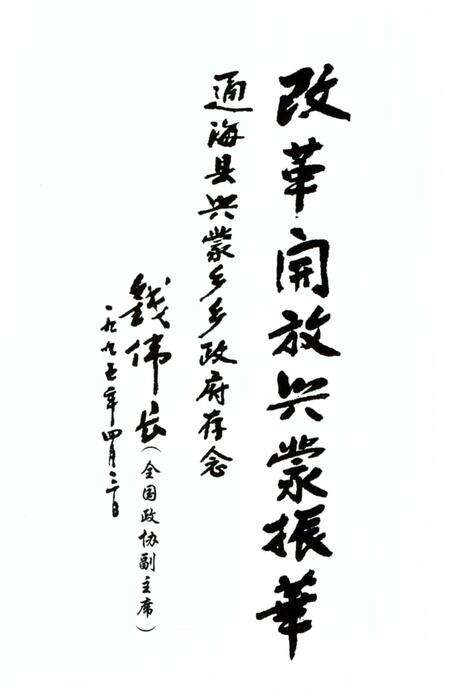 改革開放兴蒙振華
通海县兴蒙乡乡政府存念
钱伟长（全国政协副主席）
一九九五年四月二十日